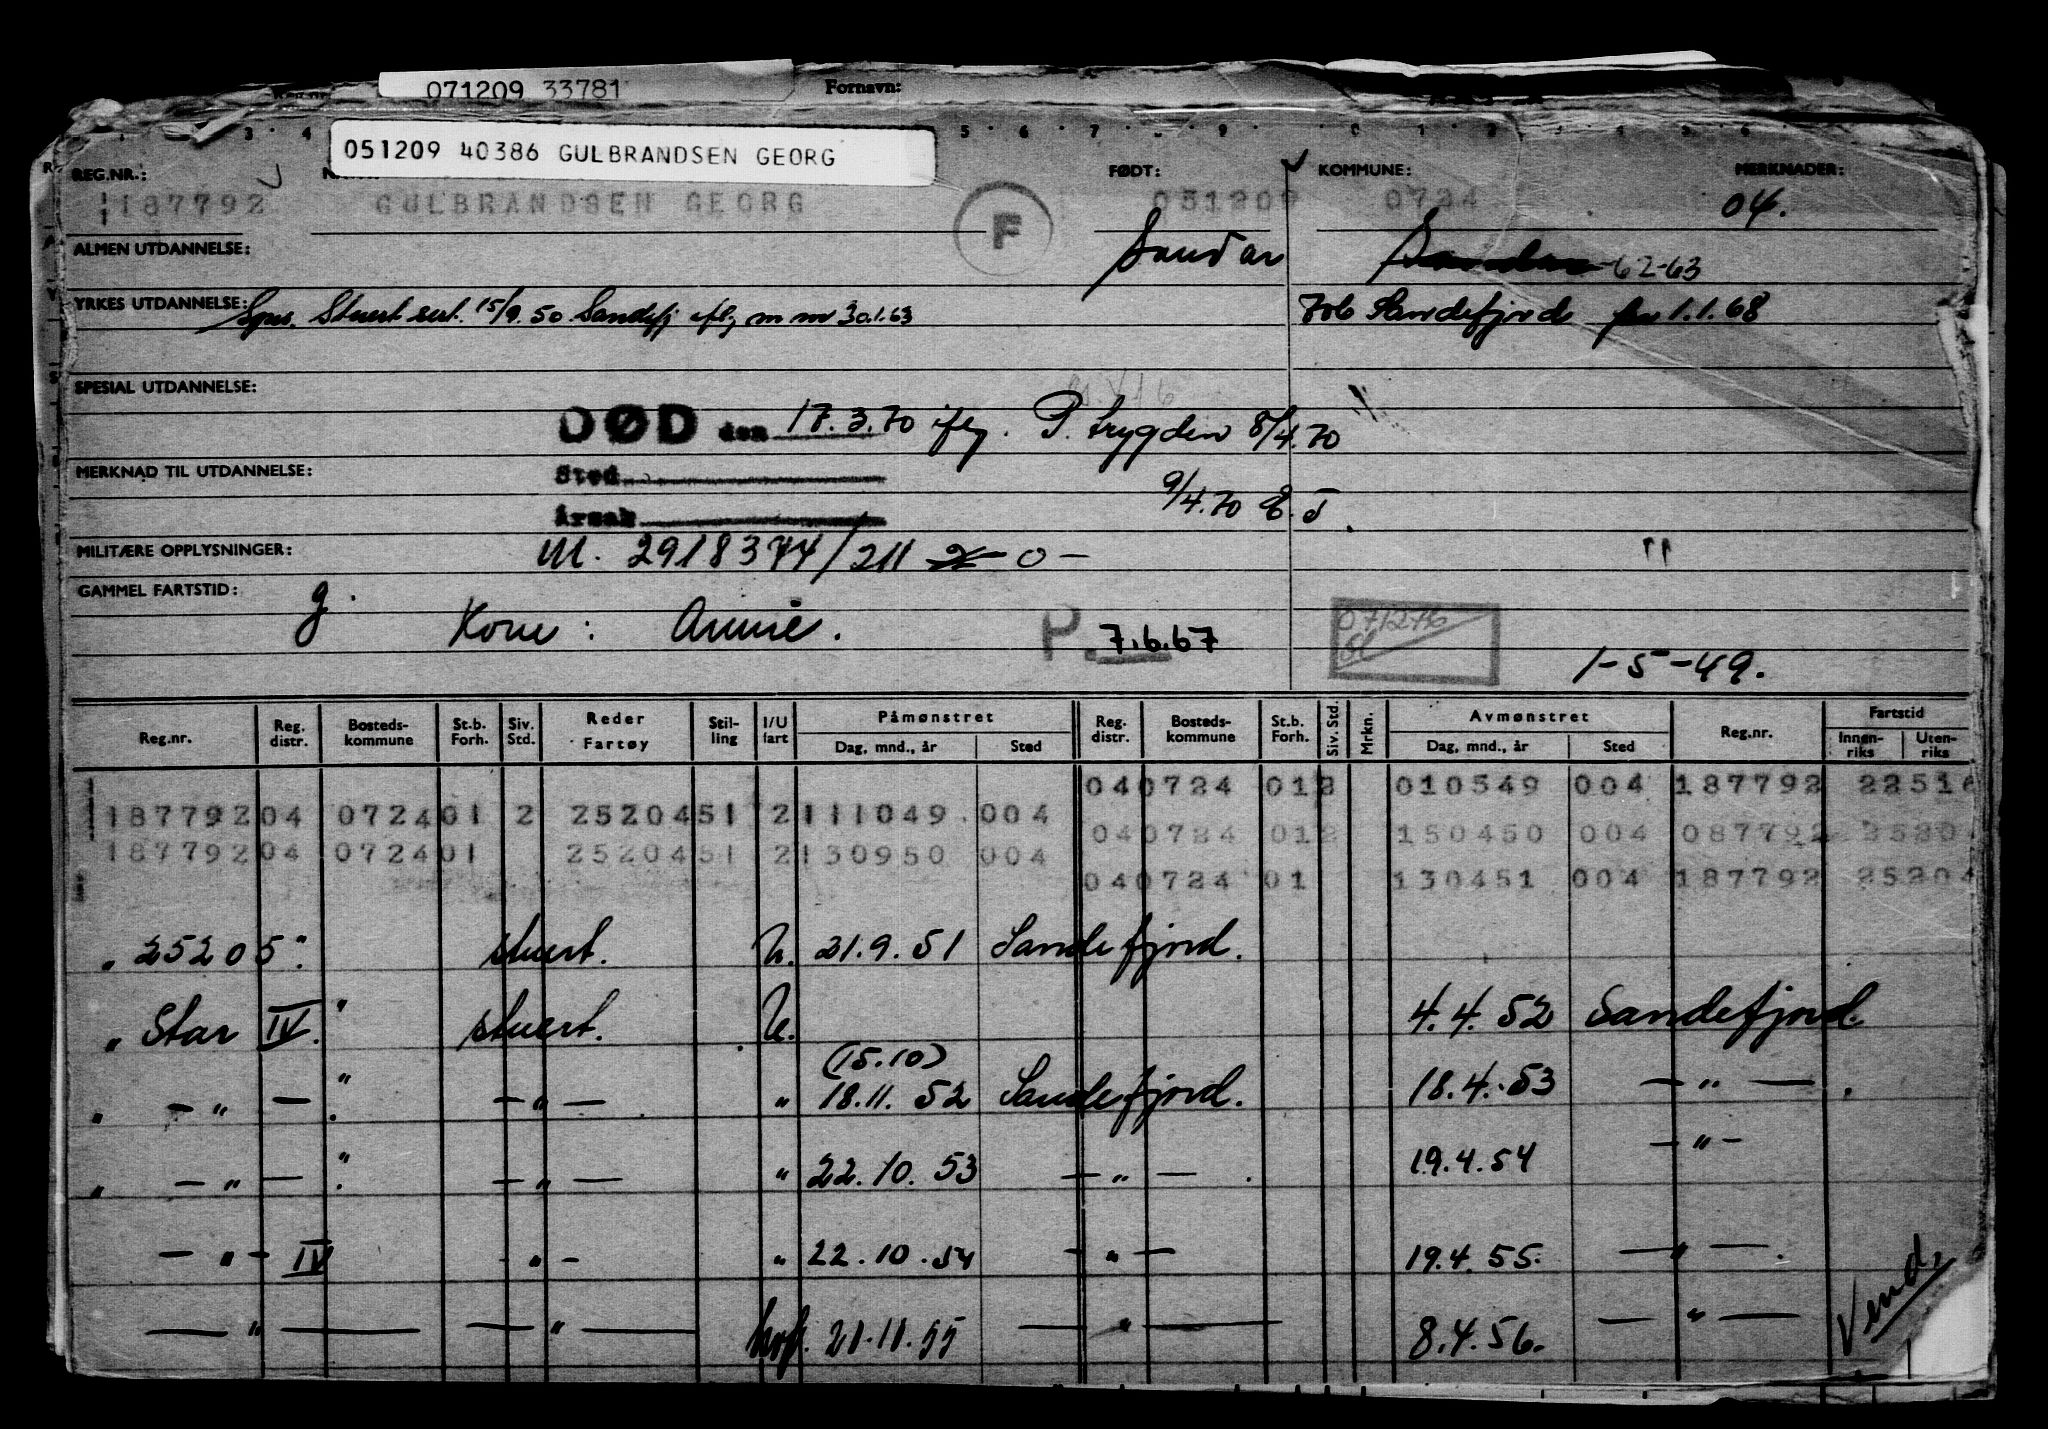 071209 33781 Fornavn:
051209 40386 GULBRANDSEN GEORG
REG.NR.: FØDT: KOMMUNE: MERKNADER:
187792 GULBRANDSEN GEORG 051209 0724 04.
F
ALMEN UTDANNELSE: Sandar Sandar -62-63
YRKES UTDANNELSE: Stuert sert. 15/9.50. Sandefj iflg m m 30.1.63 706 Sandefjord fra 1.1.68
SPESIAL UTDANNELSE:
DØD den 17.3.70 iflg. P. trygden 8/4.70
MERKNAD TIL UTDANNELSE: Sted 9/4.70 E.T.
Årsak
MILITÆRE OPPLYSNINGER: M. 2918374/211 0 — "
GAMMEL FARTSTID: g. Kone: Annie. P. 7.6.67 071276
1-5-49.
Reg.nr. Reg. distr. Bosteds-kommune St.b. Forh. Siv. Std. Reder Fartøy Stil-ling I/U fart Påmønstret Dag, mnd., år Sted Reg. distr. Bosteds-kommune St.b. Forh. Siv. Std. Mrkn. Avmønstret Dag, mnd., år Sted Reg.nr. Fartstid Innen-riks Uten-riks
040724 012 010549 004 187792 22516
187792 04 0724 01 2 2520451 2 111049 004
040724 012 150450 004 087792 2520
187792 04 0724 01 2520451 2 130950 004
040724 01 130451 004 187792 25204
" 25205 " stuert. U. 21.9.51 Sandefjord.
" Star IV. " stuert. U. 4.4.52 Sandefjord.
(15.10)
" — " — " — " — " 18.11.52 Sandefjord. 18.4.53 — " — .
" — " — " — " — " 22.10.53 — " — . 19.4.54 — " —
— " — IV — " — " 22.10.54 — " — 19.4.55. — " — .
— " — — " — hvf. 21.11.55 — " — 8.4.56. — " —
Vend.